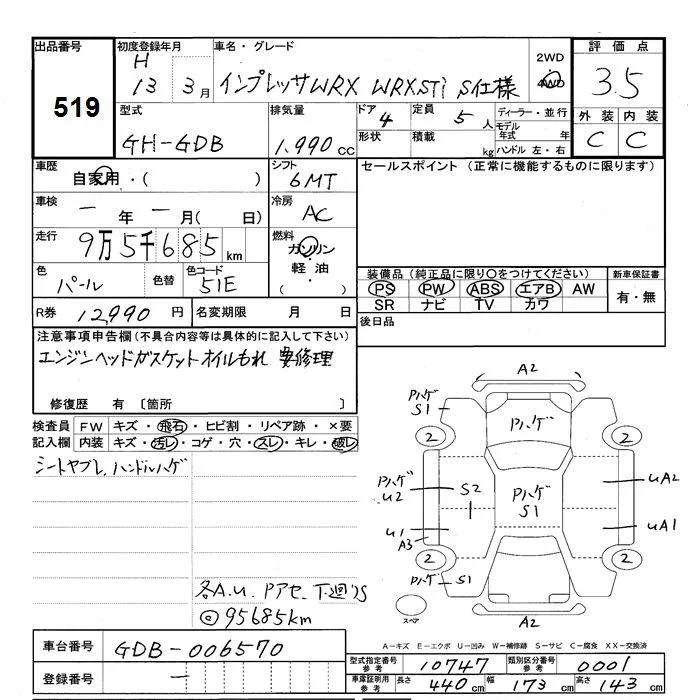 出品番号 初度登録年月 車名・グレード 2WD 4WD 評価点
519 H 13 3月 インプレッサWRX WRXSTi S仕様 3.5
型式 排気量 ドア 4 定員 5人 ディーラー・並行 外装 内装
GH-GDB 1,990cc 形状 積載 kg モデル年式 年 C C
ハンドル 左・右
車歴 自家用・( ) シフト 6MT セールスポイント (正常に機能するものに限ります)
車検 一年一月( 日) 冷房 AC
走行 9万5千685km 燃料 ガソリン 軽油・( )
色 パール 色替 色コード 51E 装備品 (純正品に限り○をつけてください) 新車保証書
PS PW ABS エアB AW 有・無
SR ナビ TV カワ
R券 12,990円 名変期限 月 日 後日品
注意事項申告欄 (不具合内容等は具体的に記入して下さい)
エンジンヘッドガスケットオイルもれ 要修理
修復歴 有 〔箇所 〕
検査員 FW キズ・飛石・ヒビ割・リペア跡・×要
記入欄 内装 キズ・汚レ・コゲ・穴・スレ・キレ・破レ
シートヤブレ, ハンドルハゲ
A2
Pハゲ S1 Pハゲ
2 2
Pハゲ U2 S2 Pハゲ S1 UA2
U1 A3 UA1
2 2
Pハゲ S1
スペア A2
各A.U. Pアセ. 下廻りS
@95685km
A－キズ E－エクボ U－凹み W－補修跡 S－サビ C－腐食 XX－交換済
車台番号 GDB-006570
登録番号 一
型式指定番号 参考 10747 類別区分番号 参考 0001
車庫証明用 参考 長さ 440cm 幅 173cm 高さ 143cm